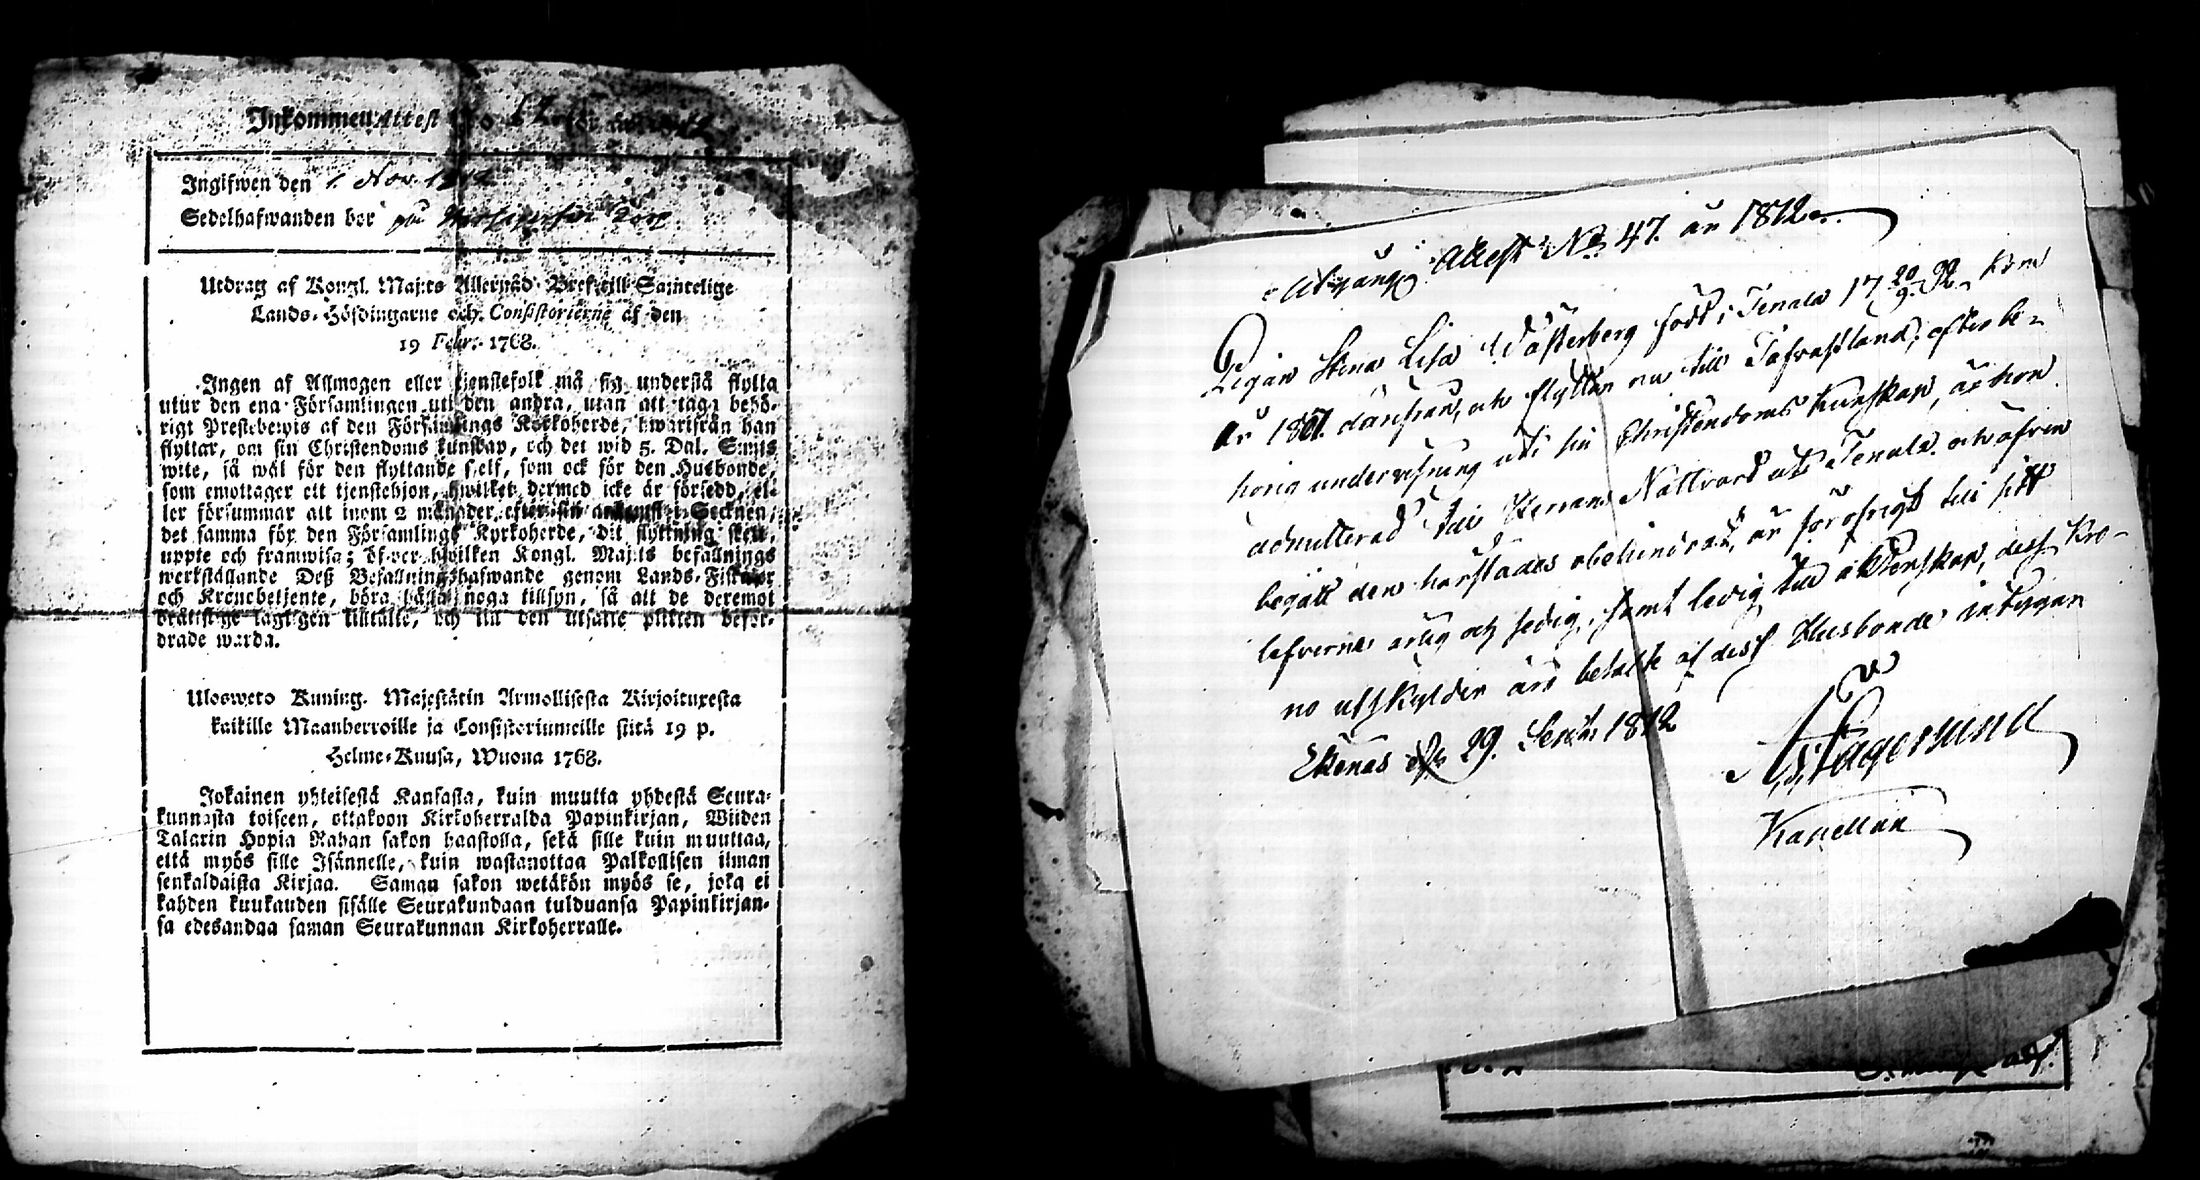 Inkommen Attest N:o 17 för år 1812
Ingifwen den 1. Nov. 1812
Sedelhafwanden bor på
Utdrag af Kongl. Maj:ts Allernåd. Bref till Samtelige
Lands-Höfdingarne och Consistorierne af den
19 Febr. 1768.
Ingen af Allmogen eller tjenstefolk må sig understå flytta
utur den ena Församlingen uti den andra, utan att taga behö-
rigt Prestebewis af den Församlings Kyrkoherde, hwarifrån han
flyttar, om sin Christendoms kunskap, och det wid 5. Dal. S:mts
wite, så wäl för den flyttande sjelf, som ock för den Husbonde,
som emottager ett tjenstehjon, hwilket dermed icke är försedd, el-
ler försummar att inom 2 månader, efter sin ankomst i Socknen,
det samma för den Församlings Kyrkoherde, dit flyttning skett,
uppte och framwisa; öfwer hwilken Kongl. Maj:ts befallnings
werkställande Deß Befallningshafwande genom Lands-Fiskaler
och Kronobetjente, böra hålla noga tillsyn, så att de deremot
brottslige lagligen tilltalte, och till den utsatte plikten befor-
drade warda.
Ulosweto Kuning. Majestätin Armollisesta Kirjoituxesta
kaikille Maanherroille ja Consistoriumeille siitä 19 p.
Helme-Kuusa, Wuona 1768.
Jokainen yhteisestä Kansasta, kuin muutta yhdestä Seura-
kunnasta toiseen, ottakoon Kirkoherralda Papinkirjan, Wiiden
Talarin Hopia Rahan sakon haastolla, sekä sille kuin muuttaa,
että myös sille Isännelle, kuin wastanottaa Palkollisen ilman
senkaldaista Kirjaa. Saman sakon wetäkön myös se, joka ei
kahden kuukauden sisälle Seurakundaan tulduansa Papinkirjan-
sa edesandaa saman Seurakunnan Kirkoherralle.
Utgångs Attest No 47. år 1812.
Pigan Stena Lisa Wästerberg född i Tenala 17 20/9 92, kom
år 1801. därifran, och flyttar nu till Tafvastland; efter be-
hörig undervisning uti sin Christendoms kunskap, är hon
admitterad till Herrans Nattvard uti Tenala och äfven
begått den härstädes obehindrat, är för öfrigt till sitt
lefverne ärlig och sedig, samt ledig till äktenskap, dess Kro-
no utskylder äro betalte af dess Husbonde intygar
Ekenäs d. 29. Sept. 1812
Fagerlund
Kapellan